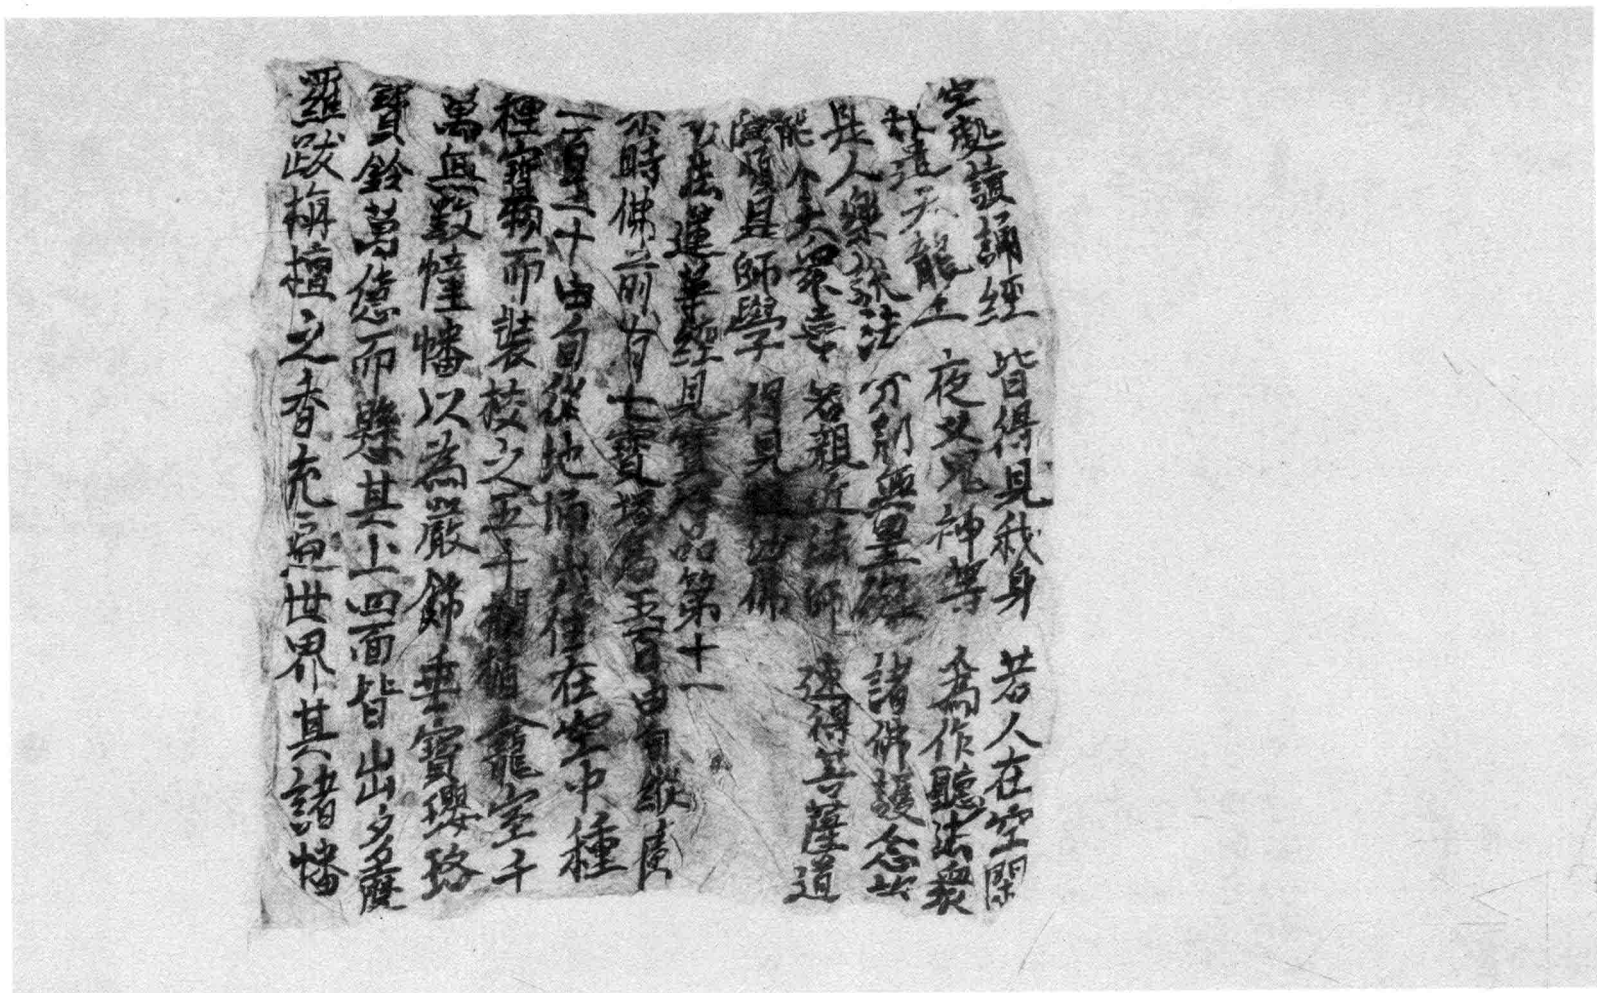 空處讀誦經 皆得見我身 若人在空閑
我遣天龍王 夜叉鬼神等 為作聽法衆
是人樂說法 分別無罣礙 諸佛護念故
能令大衆喜 若親近法師 速得菩薩道
隨順是師學 得見 沙佛
妙法蓮華經見寶塔品第十一
尒時佛前有七寶塔高五百由旬縱廣
二百五十由旬從地涌出住在空中種
種寶物而莊校之五千欄楯龕室千
萬無數幢幡以為嚴飾垂寶瓔珞
寶鈴萬億而懸其上四面皆出多摩
羅跋栴檀之香充遍世界其諸幡